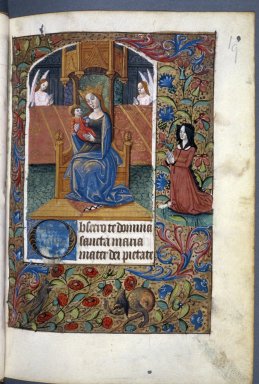 19
Obsecro te domina
sancta maria
mater dei pietate